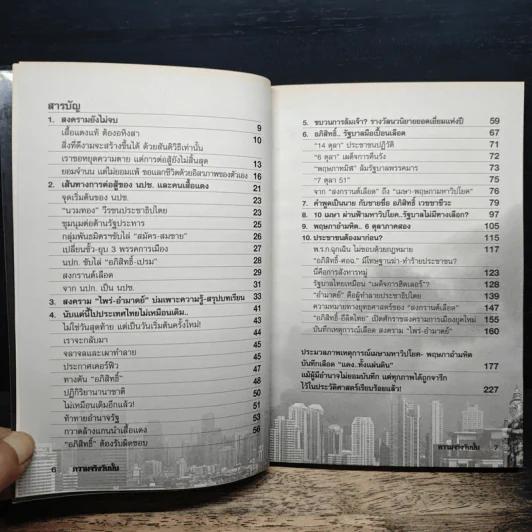 สารบัญ
1. สงครามยังไม่จบ
เสื้อแดงแท้ ต้องอหิงสา 9
สิ่งที่ดีงามจะสร้างขึ้นได้ ด้วยสันติวิธีเท่านั้น 10
เราขอหยุดความตาย แต่การต่อสู้ยังไม่สิ้นสุด 13
ยอมจำนน แต่ไม่ยอมแพ้ ขอแลกชีวิตด้วยอิสรภาพของตัวเอง 16
2. เส้นทางการต่อสู้ของ นปช. และคนเสื้อแดง 21
จุดเริ่มต้นของ นปช. 21
"นวมทอง" วีรชนประชาธิปไตย 23
ชุมนุมต่อต้านรัฐประหาร 24
กลุ่มพันธมิตรฯขับไล่ "สมัคร-สมชาย" 25
เปลี่ยนขั้ว-ยุบ 3 พรรคการเมือง 26
นปช. ขับไล่ "อภิสิทธิ์-เปรม" 27
สงกรานต์เลือด 28
จาก นปก. เป็น นปช. 31
3. สงคราม "ไพร่-อำมาตย์" บ่มเพาะความรู้-สรุปบทเรียน 33
4. นับแต่นี้ไปประเทศไทยไม่เหมือนเดิม.. 41
ไม่ใช่วันสุดท้าย แต่เป็นวันเริ่มต้นครั้งใหม่! 41
เราจะกลับมา 43
จลาจลและเผาทำลาย 44
ประกาศเคอร์ฟิว 45
ทางตัน "อภิสิทธิ์" 47
ปฏิกิริยานานาชาติ 48
ไม่เหมือนเดิมอีกแล้ว! 50
ท้าทายอำนาจรัฐ 51
กวาดล้างแกนนำเสื้อแดง 53
"อภิสิทธิ์" ต้องรับผิดชอบ 56
6 ความจริงวันนั้น
5. ขบวนการล้มเจ้า? รางวัลนวนิยายยอดเยี่ยมแห่งปี 59
6. อภิสิทธิ์.. รัฐบาลมือเปื้อนเลือด 67
"14 ตุลา" ประชาชนปฏิวัติ 71
"6 ตุลา" เผด็จการคืนรัง 72
"พฤษภาทมิฬ" ล้มรัฐบาลทหาร 73
"7 ตุลา 51" 75
จาก "สงกรานต์เลือด" ถึง "เมษา-พฤษภามหาวิปโยค" 76
7. คำพูดเป็นนาย กับชายชื่อ อภิสิทธิ์ เวชชาชีวะ 79
8. 10 เมษา ผ่านฟ้ามหาวิปโยค..รัฐบาลไม่มีทางเลือก? 97
9. พฤษภาอำมหิต.. 6 ตุลาภาคสอง 105
10. ประชาชนต้องมาก่อน? 115
พ.ร.ก.ฉุกเฉิน ไม่ชอบด้วยกฎหมาย 117
"อภิสิทธิ์-ศอฉ." มีโทษฐานฆ่า-ทำร้ายประชาชน?
นี่คือการสังหารหมู่ 123
รัฐบาลไทยเหมือน "เผด็จการฮิตเลอร์"? 128
"อำมาตย์" คือผู้ทำลายประชาธิปไตย 139
ความหมายทางยุทธศาสตร์ของ "สงกรานต์เลือด" 147
"อภิสิทธิ์-อีลิตไทย" เปิดศักราชสงครามการเมืองยุคใหม่ 155
บันทึกเหตุการณ์เลือด สงคราม "ไพร่-อำมาตย์" 160
ประมวลภาพเหตุการณ์เมษามหาวิปโยค- พฤษภาอำมหิต 177
บันทึกเลือก "แดง..ทั้งแผ่นดิน"
แม้ผู้มีอำนาจไม่ยอมบันทึก แต่ทุกภาพได้ถูกจารึก
ไว้ในประวัติศาสตร์เรียบร้อยแล้ว! 227
ความจริงวันนั้น 7